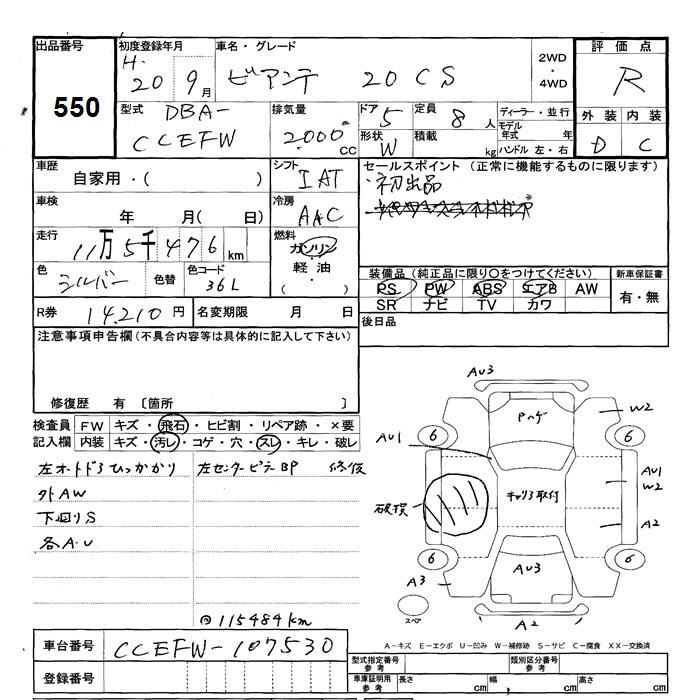 出品番号
550
初度登録年月
H.
20 9月
車名・グレード
ビアンテ 20CS
2WD
・
4WD
評価点
R
型式
DBA-
CCEFW
排気量
2000 CC
ドア
5
定員
8人
形状
W
積載
kg
ディーラー・並行
モデル年式 年
ハンドル 左・右
外装 内装
D C
車歴
自家用・( )
シフト
I AT
セールスポイント (正常に機能するものに限ります)
・初出品
車検
年 月( 日)
冷房
AAC
走行
11万5千476km
燃料
ガソリン
軽油
・
( )
色
シルバー
色替
色コード
36L
装備品 (純正品に限り○をつけてください)
PS PW ABS エアB AW
SR ナビ TV カワ
新車保証書
有・無
R券 14,210円
名変期限 月 日
後日品
注意事項申告欄(不具合内容等は具体的に記入して下さい)
修復歴 有 〔箇所 〕
検査員記入欄
FW キズ・飛石・ヒビ割・リペア跡・×要
内装 キズ・汚レ・コゲ・穴・スレ・キレ・破レ
左オートドアひっかかり
左センターピラーBP 修復
外AW
下廻りS
各A・U
@115484km
AU3
Pハゲ
W2
6
6
AU1
AU1
W2
破損
キャリア取付
A2
6
6
AU3
A3
スペア
A2
A−キズ E−エクボ U−凹み W−補修跡 S−サビ C−腐食 XX−交換済
車台番号
CCEFW-107530
登録番号
型式指定番号
参考
類別区分番号
参考
車庫証明用
参考
長さ cm
幅 cm
高さ cm